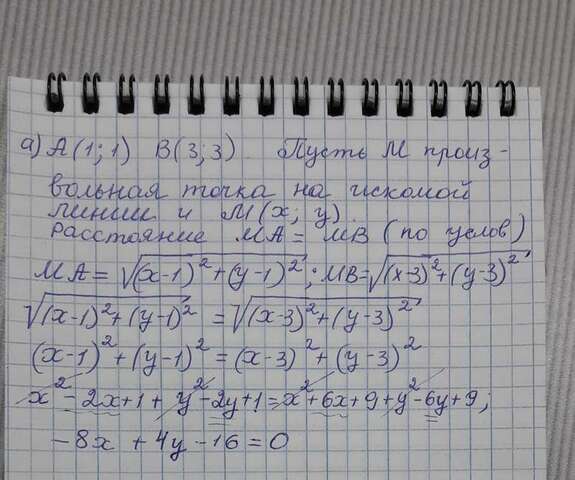 а) A(1; 1) B(3; 3). Пусть M произ-
вольная точка на искомой
линии и M(x; y).
Расстояние MA = MB (по услов)
MA = √(x-1)²+(y-1)²; MB=√(x-3)²+(y-3)²
√(x-1)²+(y-1)² = √(x-3)²+(y-3)²
(x-1)²+(y-1)² = (x-3)²+(y-3)²
x²-2x+1+y²-2y+1=x²+6x+9+y²-6y+9;
-8x+4y-16=0